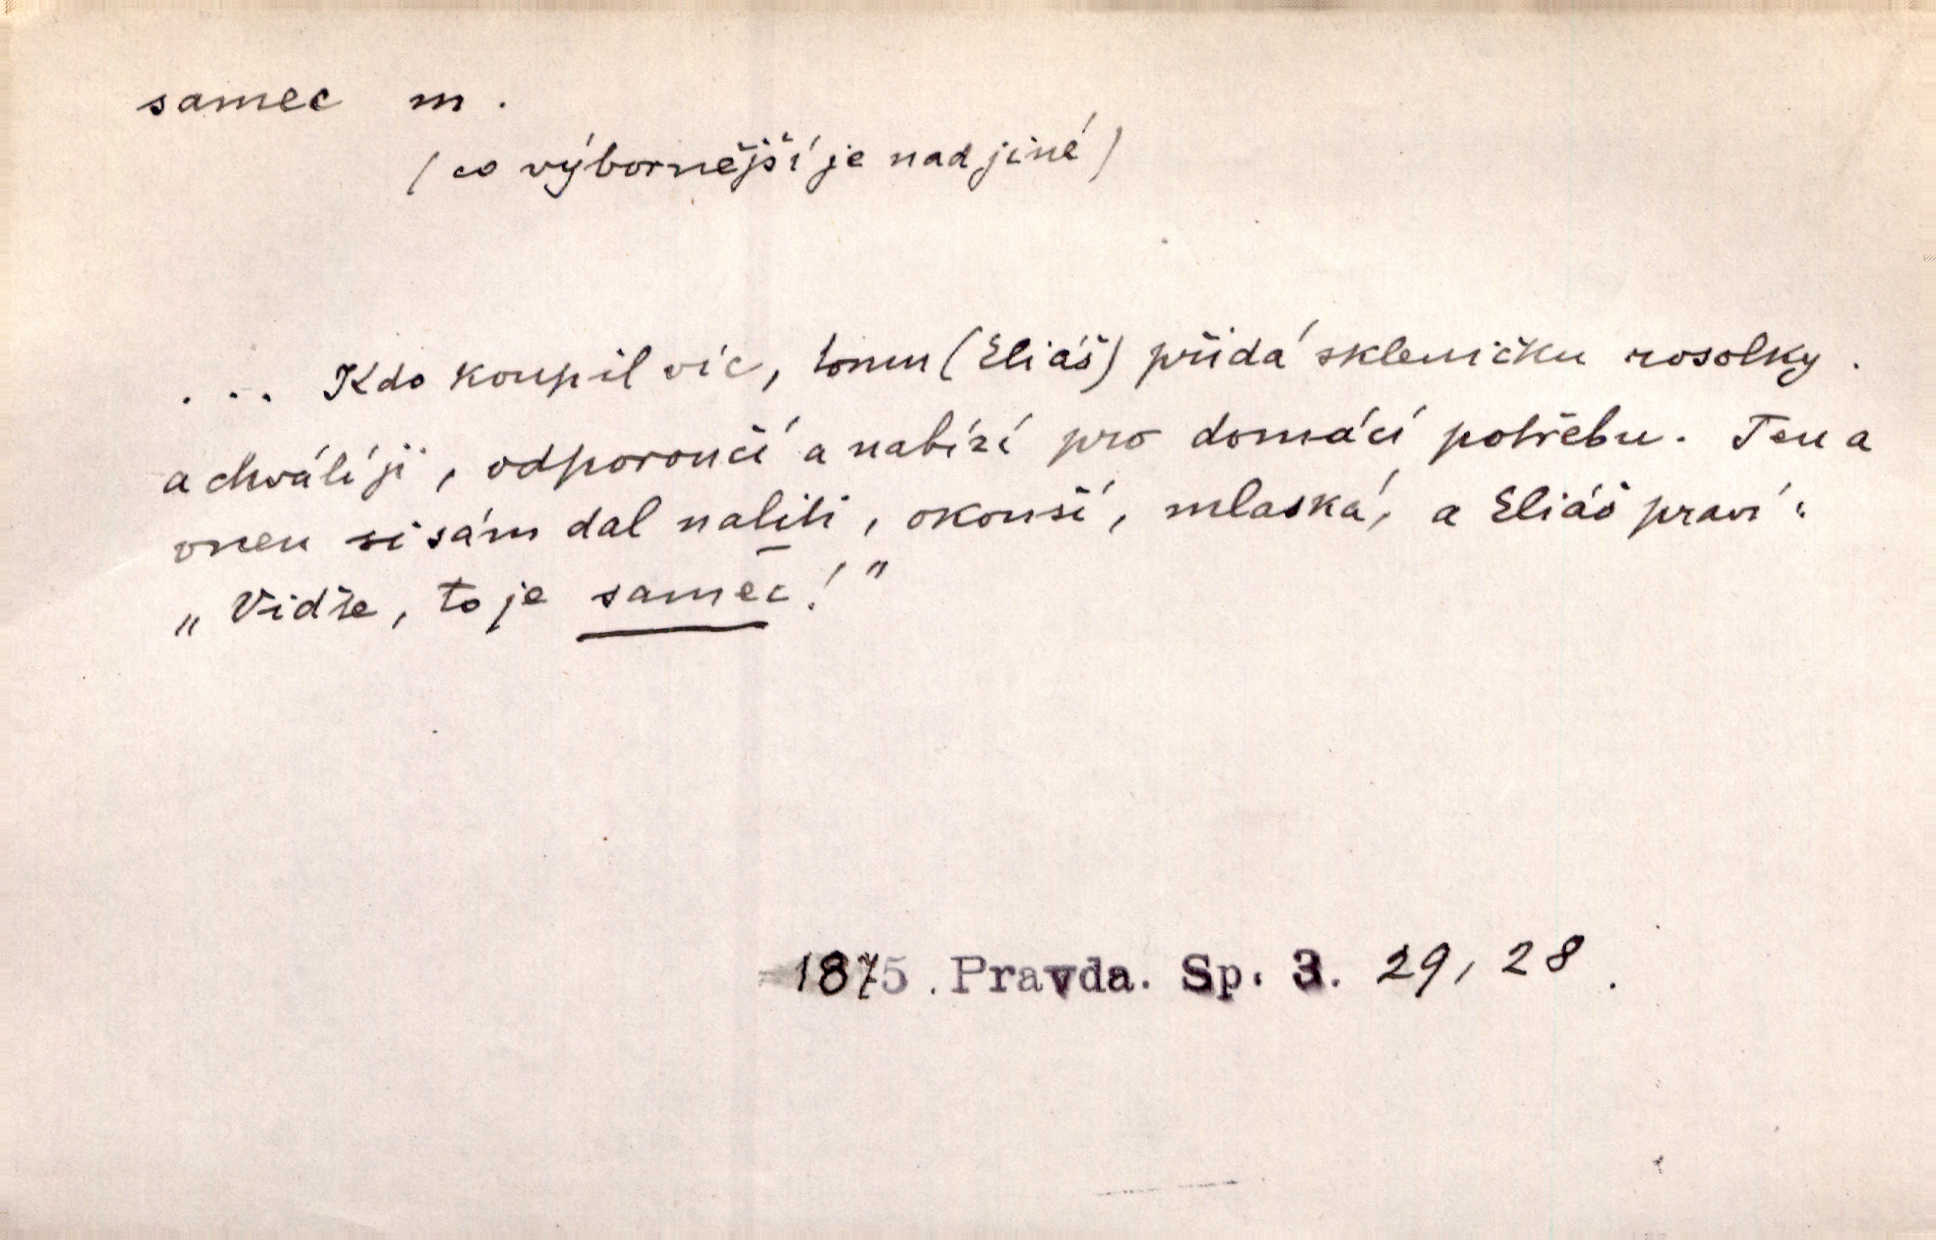 samec m.
(co výbornější je nad jiné)
... Kdo koupil víc, tomu (Eliáš) přidá skleničku rosolky.
a chválí ji, odporoučí a nabízí pro domácí potřebu. Ten a
onen si sám dal naliti, okouší, mlaská, a Eliáš praví:
„Vidže, to je samec!"
1875. Pravda. Sp. 3. 29, 28.